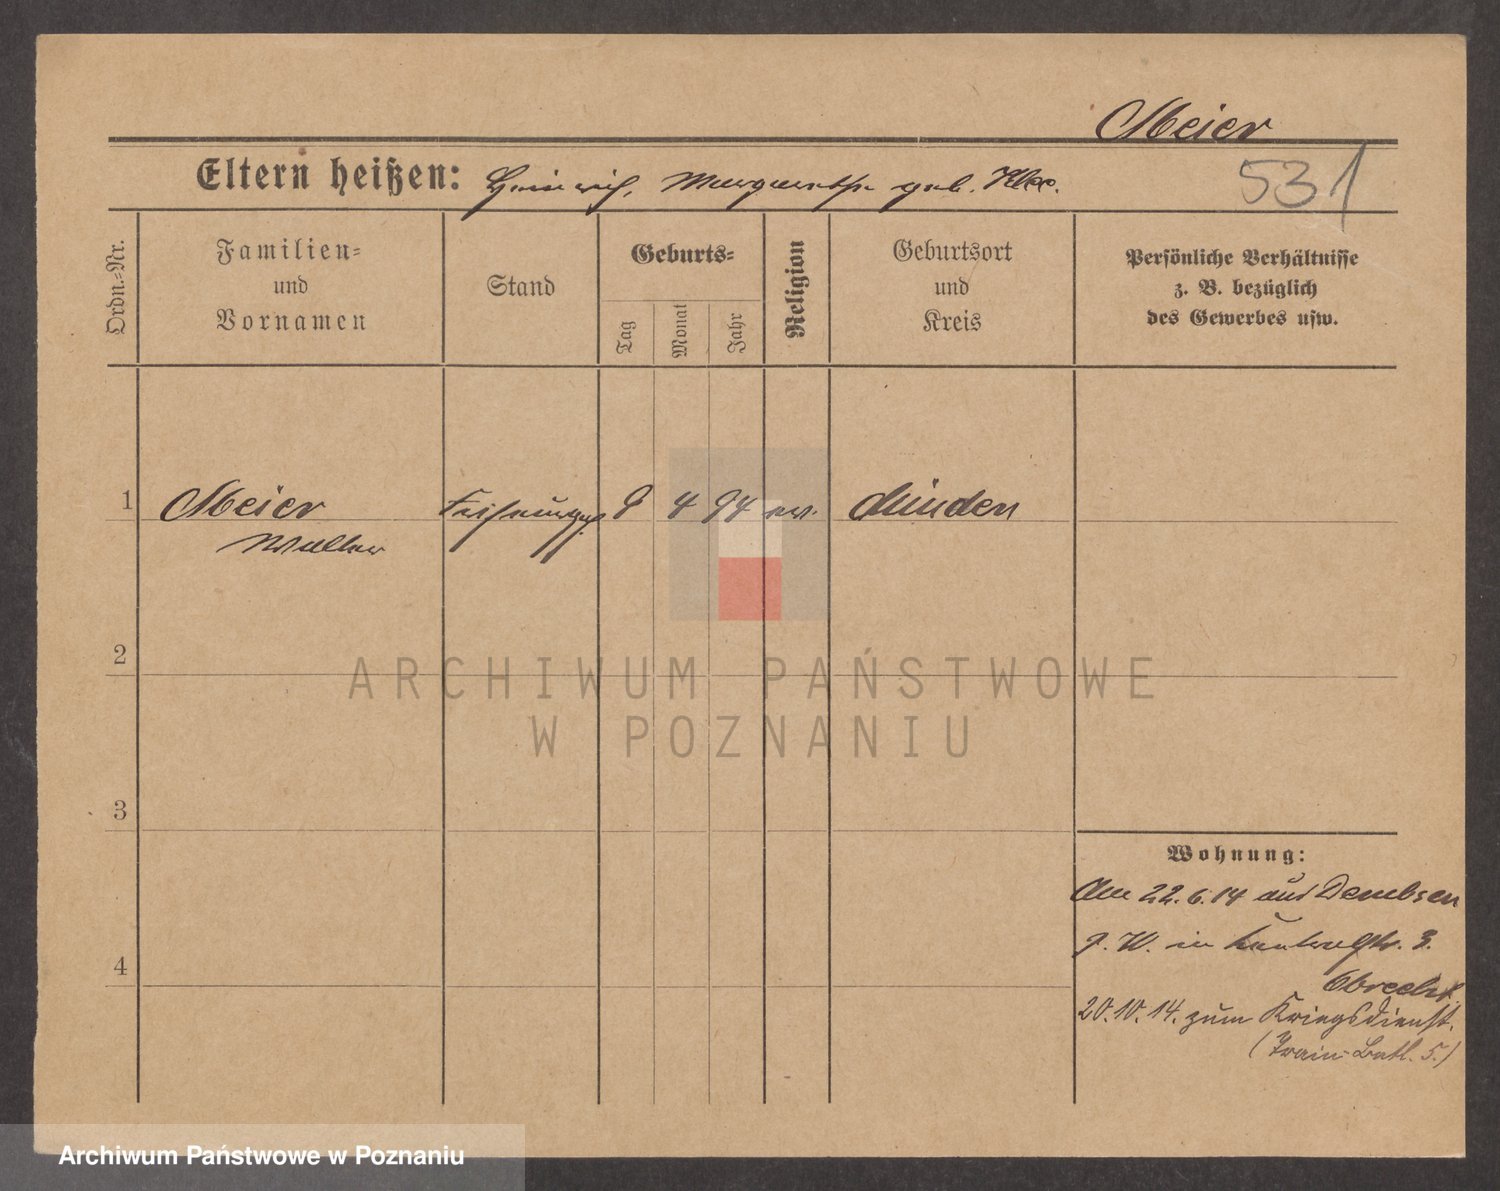 Meier
Eltern heißen: Heinrich, Margarethe geb. Klee.
531
Ordn.=Nr.
Familien=
und
Vornamen
Stand
Geburts=
Tag
Monat
Jahr
Religion
Geburtsort
und
Kreis
Persönliche Verhältnisse
z. B. bezüglich
des Gewerbes usw.
1 Meier 8 4 94 ev. Minden
Walter
2
3
4
Wohnung:
Am 22.6.14 aus Dembsen
z. W. in 3.
Obrecht.
20.10.14. zum Kriegsdienst.
(Train-Batl. 5.)
ARCHIWUM PAŃSTWOWE
W POZNANIU
Archiwum Państwowe w Poznaniu